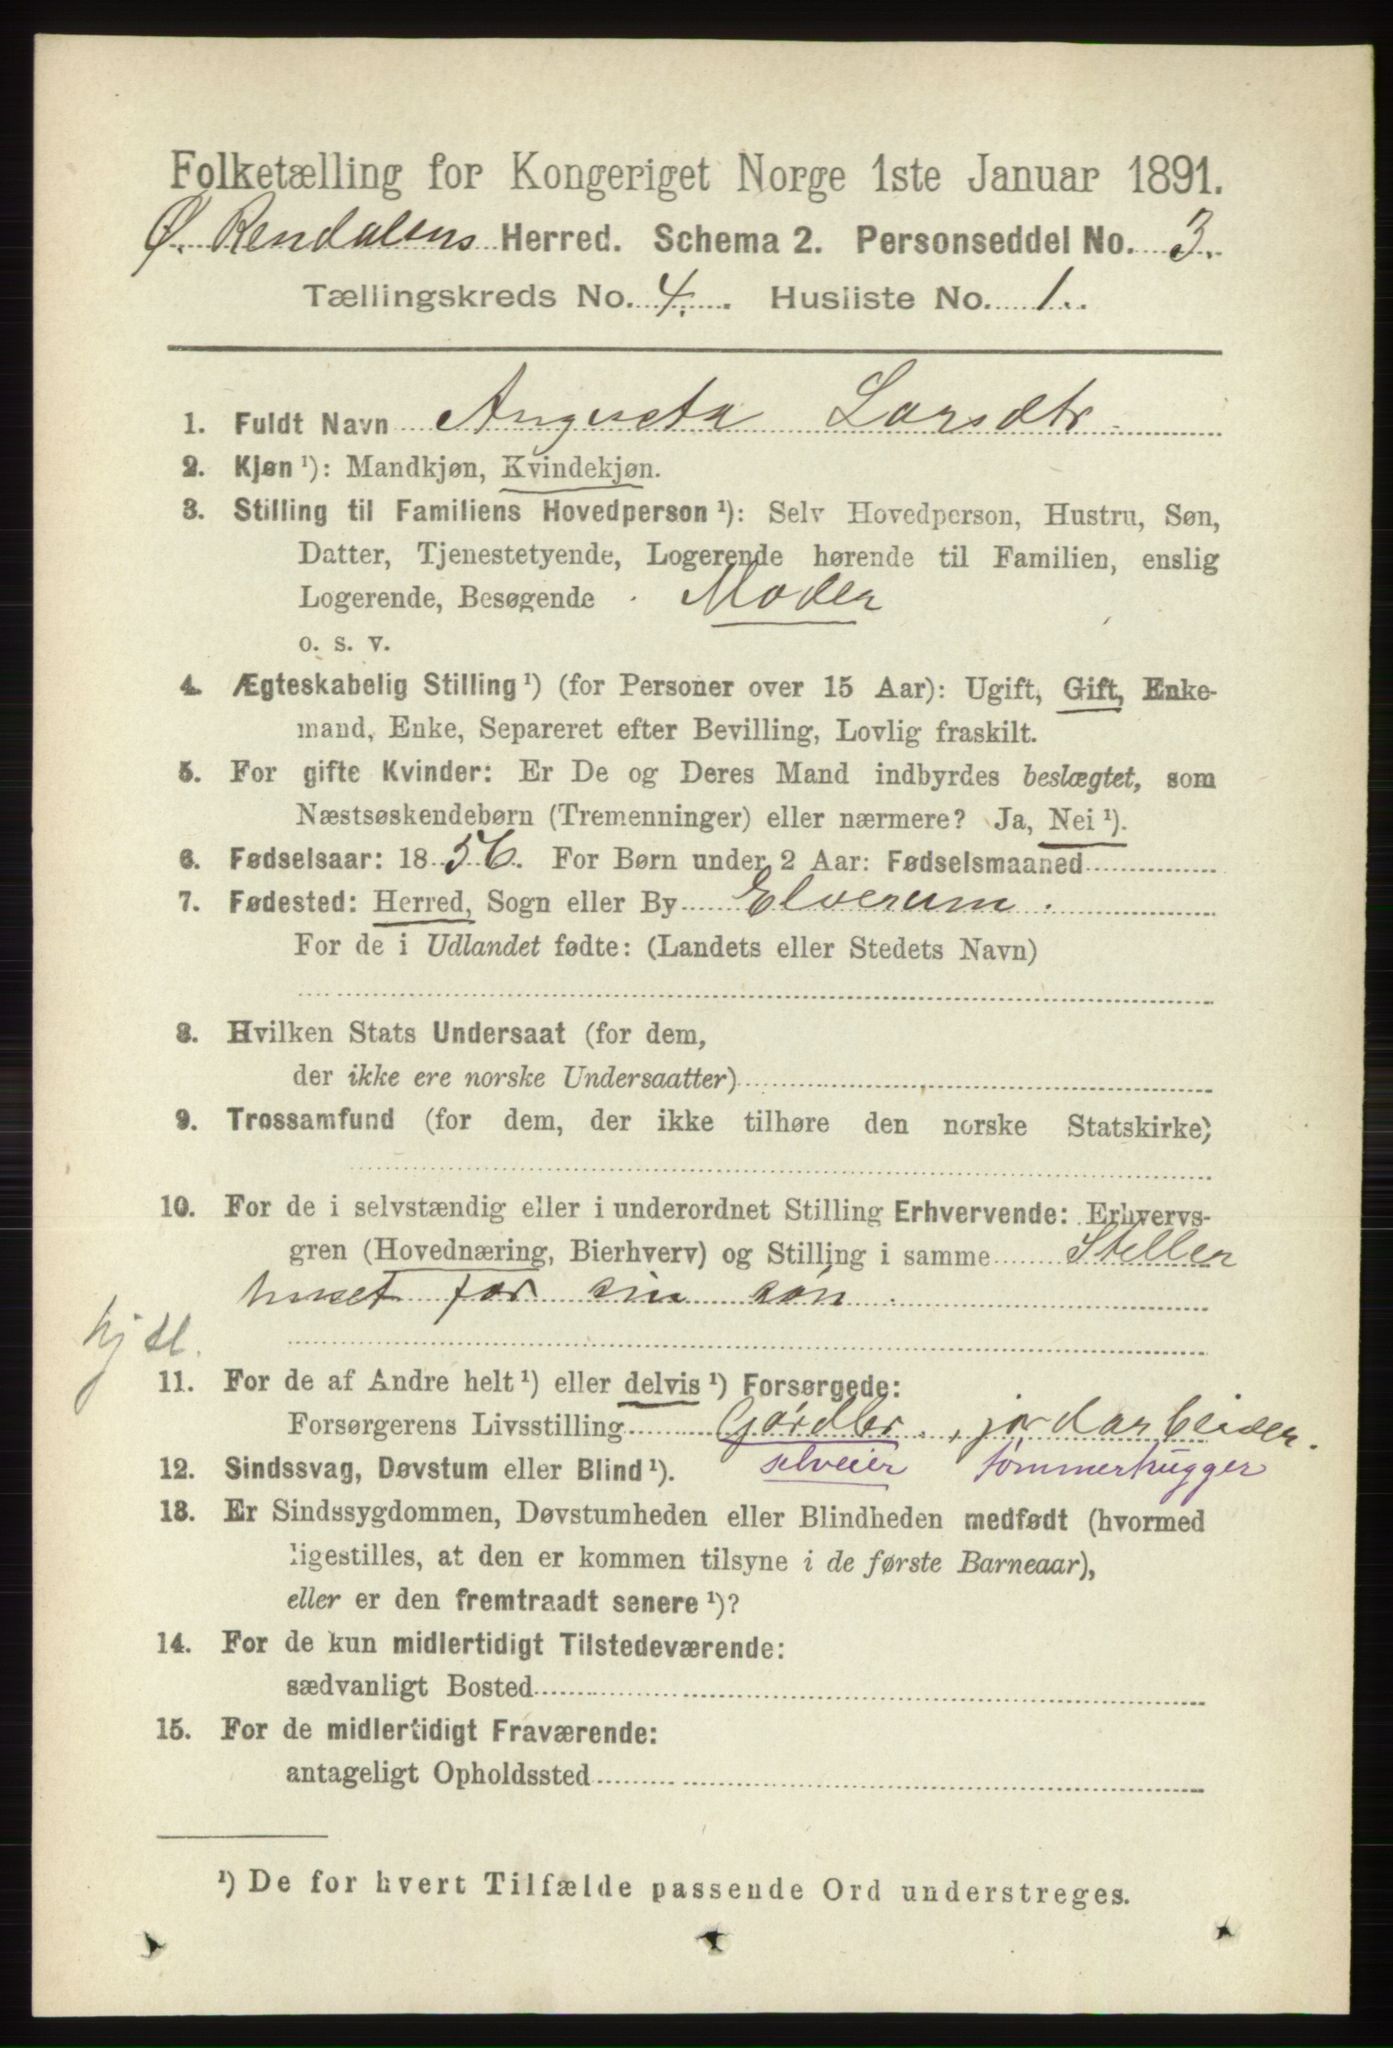 Folketælling for Kongeriget Norge 1ste Januar 1891.
Ø. Rendalens Herred. Schema 2. Personseddel No. 3.
Tællingskreds No. 4. Husliste No. 1.
1. Fuldt Navn Augusta Larsdtr
2. Kjøn ¹): Mandkjøn, Kvindekjøn.
3. Stilling til Familiens Hovedperson ¹): Selv Hovedperson, Hustru, Søn,
Datter, Tjenestetyende, Logerende hørende til Familien, enslig
Logerende, Besøgende . Moder
o. s. v.
4. Ægteskabelig Stilling ¹) (for Personer over 15 Aar): Ugift, Gift, Enke-
mand, Enke, Separeret efter Bevilling, Lovlig fraskilt.
5. For gifte Kvinder: Er De og Deres Mand indbyrdes beslægtet, som
Næstsøskendebørn (Tremenninger) eller nærmere? Ja, Nei ¹).
6. Fødselsaar: 1856. For Børn under 2 Aar: Fødselsmaaned
7. Fødested: Herred, Sogn eller By Elverum.
For de i Udlandet fødte: (Landets eller Stedets Navn)
8. Hvilken Stats Undersaat (for dem,
der ikke ere norske Undersaatter)
9. Trossamfund (for dem, der ikke tilhøre den norske Statskirke)
10. For de i selvstændig eller i underordnet Stilling Erhvervende: Erhvervs-
gren (Hovednæring, Bierhverv) og Stilling i samme Steller
huset for sin søn.
hj sl.
11. For de af Andre helt ¹) eller delvis ¹) Forsørgede:
Forsørgerens Livsstilling Gårdbr., jordarbeider.
12. Sindssvag, Døvstum eller Blind ¹). selveier tømmerhugger
13. Er Sindssygdommen, Døvstumheden eller Blindheden medfødt (hvormed
ligestilles, at den er kommen tilsyne i de første Barneaar),
eller er den fremtraadt senere ¹)?
14. For de kun midlertidigt Tilstedeværende:
sædvanligt Bosted
15. For de midlertidigt Fraværende:
antageligt Opholdssted
¹) De for hvert Tilfælde passende Ord understreges.